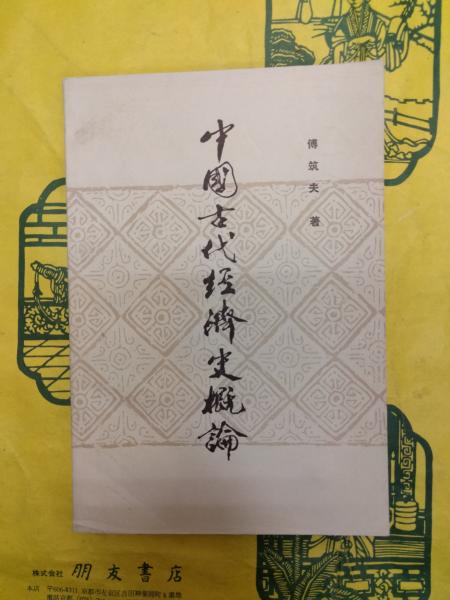 傅筑夫著
中國古代經濟史概論
株式会社 朋友書店
本店 〒606-8311 京都市左京区吉田神楽岡町8番地